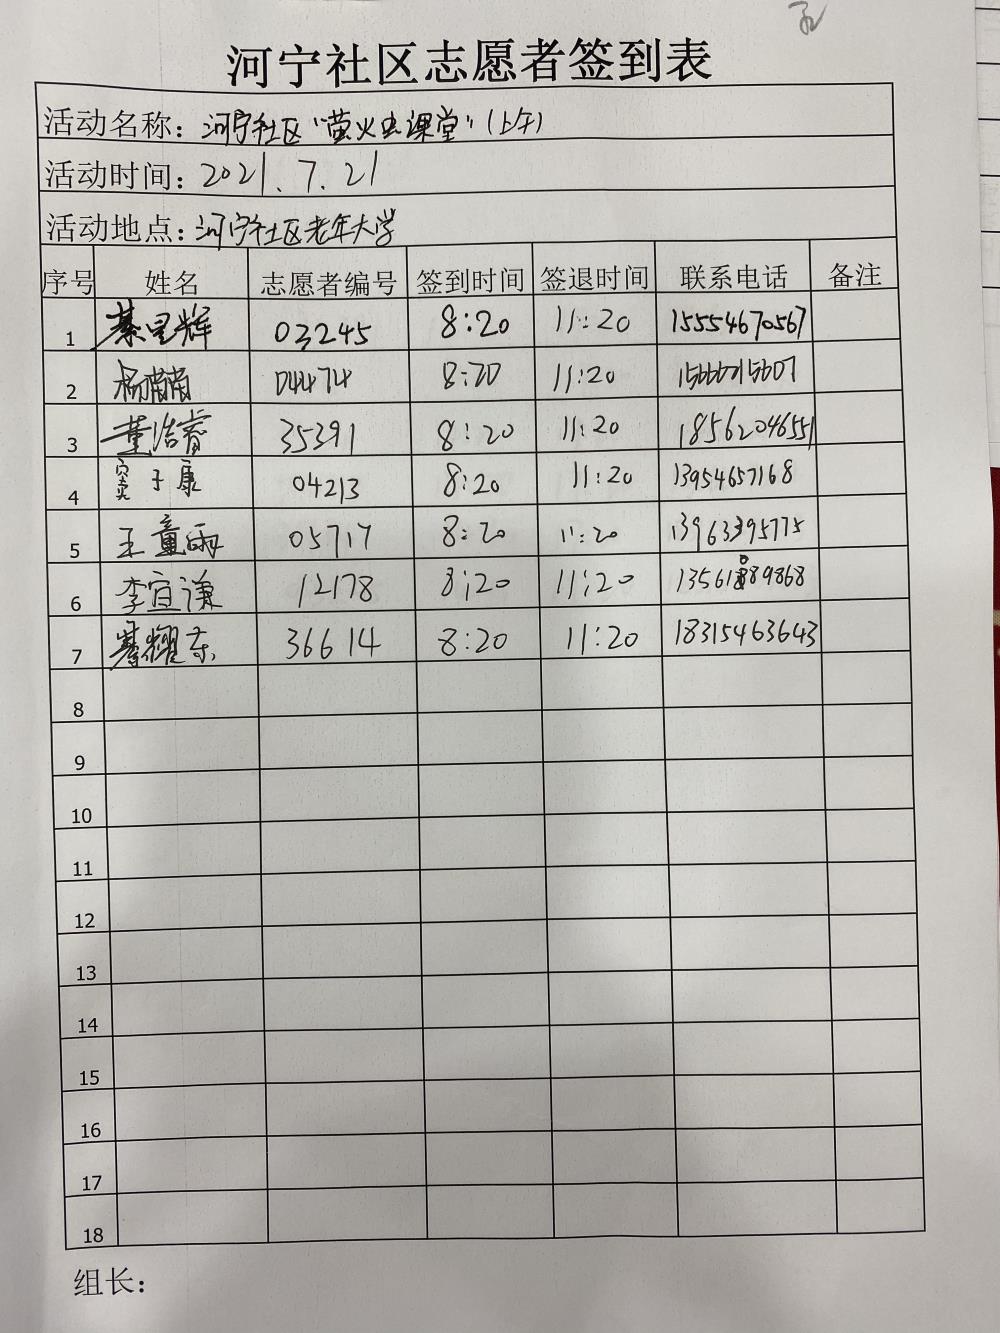 河宁社区志愿者签到表
活动名称：河宁社区“萤火虫课堂”（上午）
活动时间：2021.7.21
活动地点：河宁社区老年大学
序号 姓名 志愿者编号 签到时间 签退时间 联系电话 备注
1 綦星辉 03245 8:20 11:20 15554670567
2 杨楠楠 04474 8:20 11:20
3 董浩睿 35391 8:20 11:20 18562046551
4 窦于康 04213 8:20 11:20 13954657168
5 王童雨 05717 8:20 11:20 13963395775
6 李宜谦 12178 8:20 11:20
7 綦耀东 36614 8:20 11:20 18315463643
8
9
10
11
12
13
14
15
16
17
18
组长：